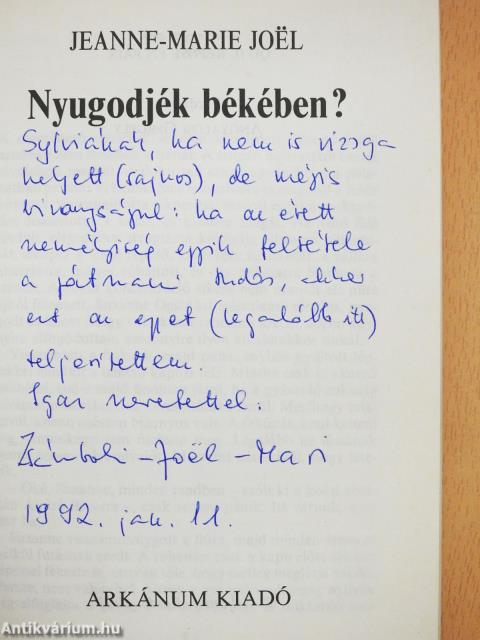 JEANNE-MARIE JOËL
Nyugodjék békében?
Sylviának, ha nem is vizsga
helyett (sajnos), de mégis
bizonyságul: ha az érett
személyiség egyik feltétele
a játszani tudás, akkor
ezt az egyet (legalább itt)
teljesítettem.
Igaz szeretettel:
Zsámboki-Joël-Mari
1992. jan. 11.
ARKÁNUM KIADÓ
Antikvárium.hu